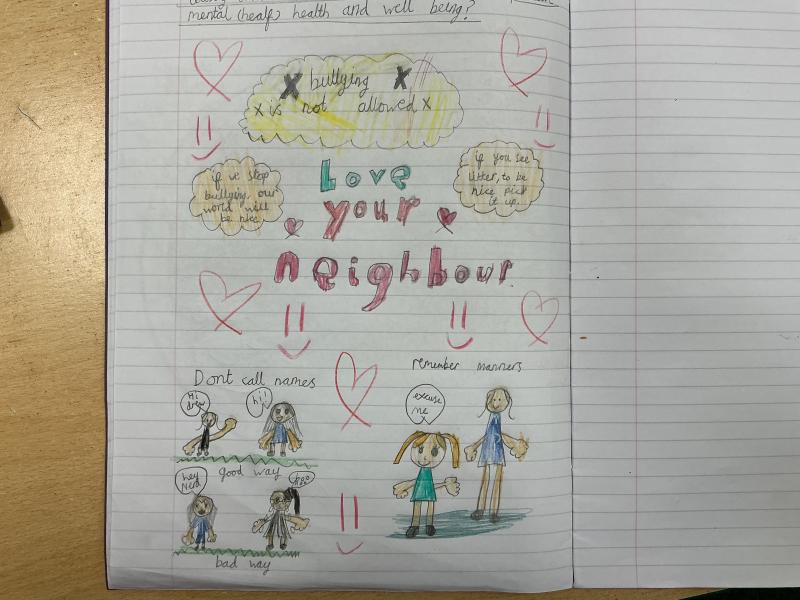 mental (heafe) health and well being?
X bullying X
x is not allowed x
if we stop
bullying, our
world will
be nice
if you see
litter, to be
nice pick
it up.
Love
your
neighbour
Dont call names
Hi
drew
hi!
good way
hey
Nerd
bad way
remember manners
excuse
me